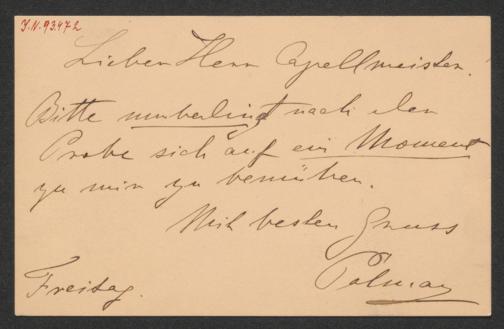 J.N. 93.472
Lieber Herr Capellmeister!
Bitte unbedingt nach der
Probe sich auf ein Moment
zu mir zu bemühen.
Mit besten Gruss
Palmay
Freitag.